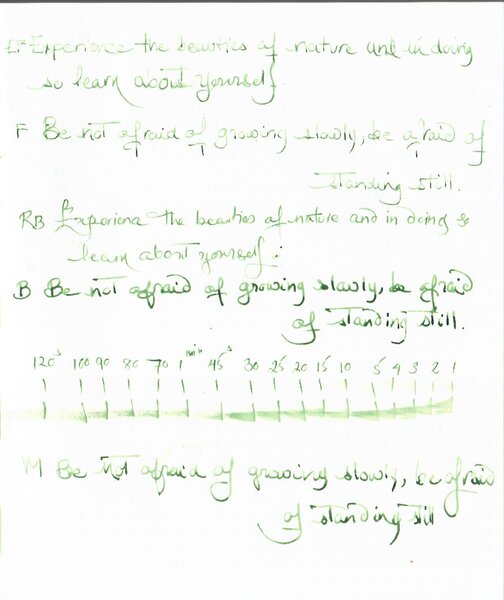 EF Experience the beauties of nature and in doing
so learn about yourself.
F Be not afraid of growing slowly, be afraid of
standing still.
RB Experience the beauties of nature and in doing so
learn about yourself.
B Be not afraid of growing slowly, be afraid
of standing still.
120s 100 90 80 70 1min 45s 30 25 20 15 10 5 4 3 2 1
M Be not afraid of growing slowly, be afraid
of standing still